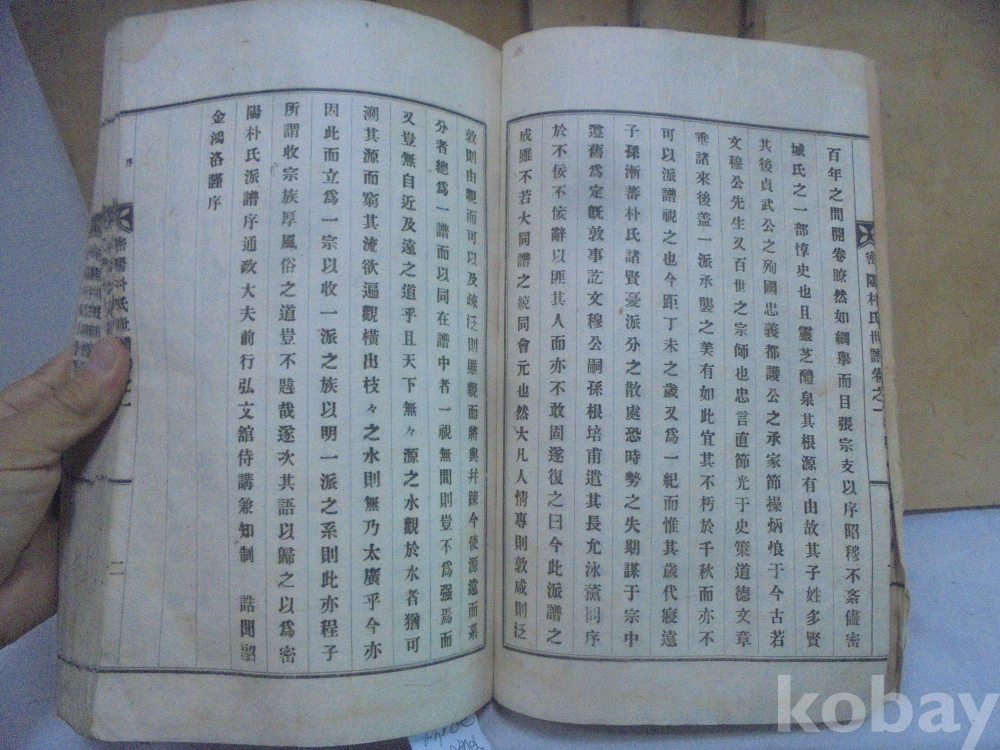 密陽朴氏世譜卷之一
百年之間開卷瞭然如綱擧而目張宗支以序昭穆不紊儘密
城氏之一部惇史也且靈芝醴泉其根源有由故其子姓多賢
其後貞武公之殉國忠義都護公之承家節操炳烺于今古若
文穆公先生又百世之宗師也忠言直節光于史策道德文章
垂諸來後盖一派承襲之美有如此宜其不朽於千秋而亦不
可以派譜視之也今距丁未之歲又爲一紀而惟其歲代寢遠
子孫漸蕃朴氏諸賢憂派分之散處恐時勢之失期謀于宗中
遵舊爲定旣敦事訖文穆公嗣孫根培甫遣其長允泳薰問序
於不佞不佞辭以匪其人而亦不敢固遂復之曰今此派譜之
成雖不若大同譜之統同會元也然大凡人情專則敦咸則泛
敦則由親而可以及疎泛則雖親而將與幷踈今使源遠而系
分者總爲一譜而以同在譜中者一視無間則豈不爲强焉而
又豈無自近及遠之道乎且天下無々源之水觀於水者猶可
溯其源而窮其淹欲遍觀橫出枝々之水則無乃太廣乎今亦
因此而立爲一宗以收一派之族以明一派之系則此亦程子
所謂收宗族厚風俗之道豈不韙哉遂次其語以歸之以爲密
陽朴氏派譜序通政大夫前行弘文舘侍講兼知制 誥聞韶
金鴻洛謹序
序
密陽朴氏世譜卷之一
二
kobay